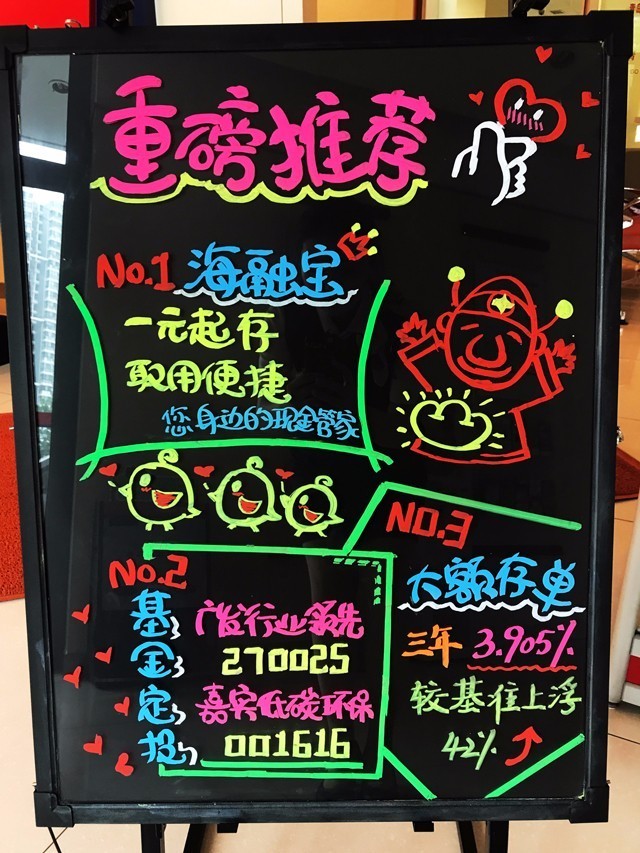 重磅推荐
No.1 海融宝
一元起存
取用便捷
您身边的现金管家
No.2
基金定投
广发行业领先
270025
嘉实低碳环保
001616
NO.3
大额存单
三年 3.905%
较基准上浮
42%